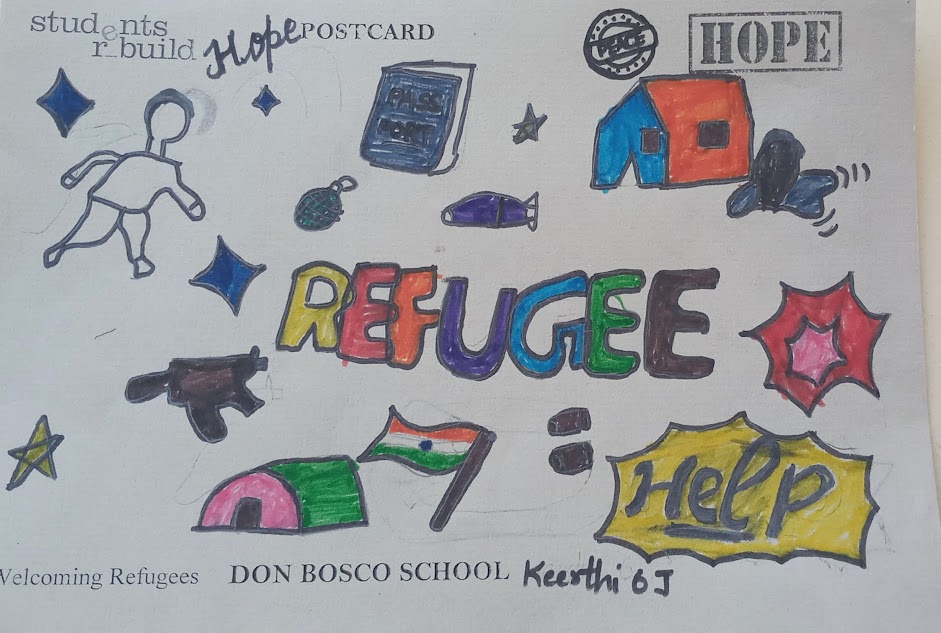 students
r_build
Hope
POSTCARD
PEACE
HOPE
PASS
PORT
REFUGEE
HelP
Welcoming Refugees
DON BOSCO SCHOOL
Keerthi 6 J